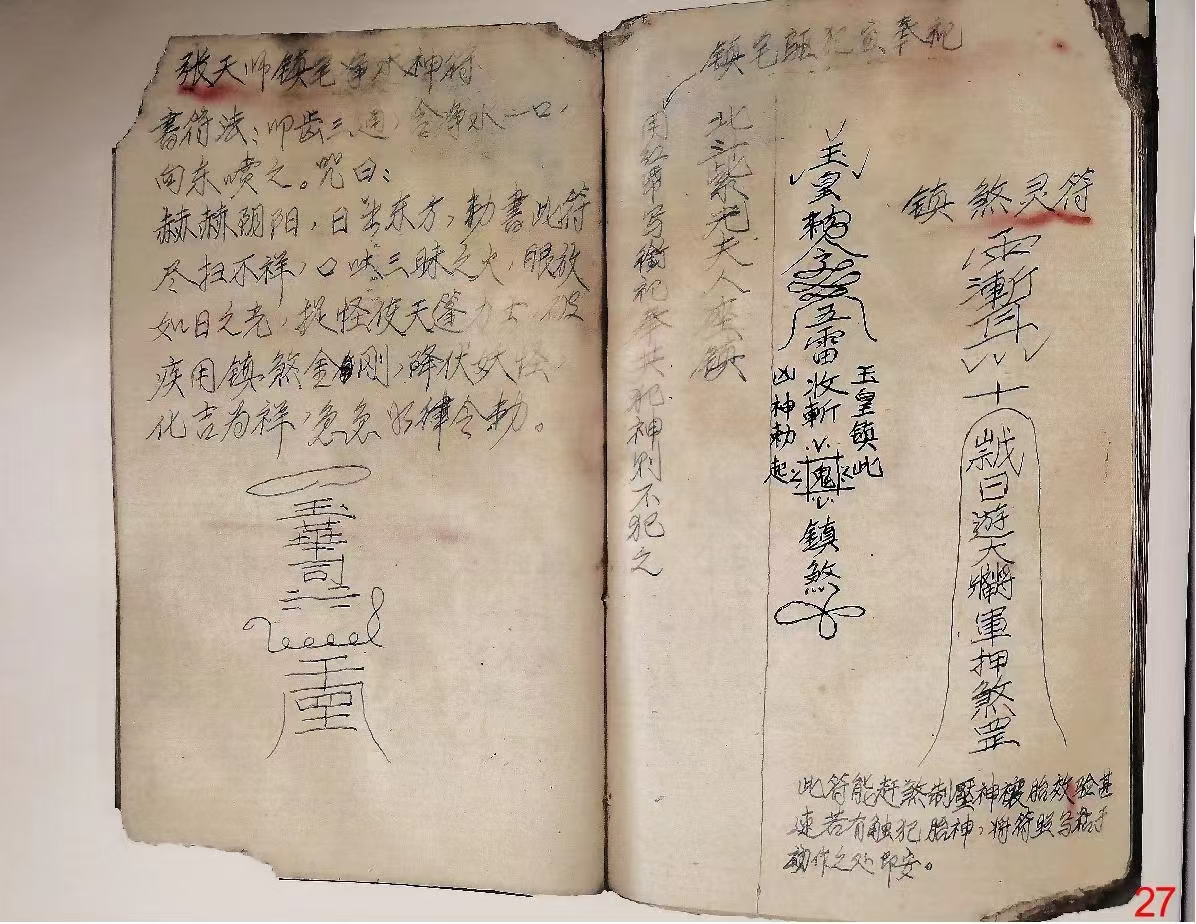 张天师镇宅净水神符
書符法：叩齿三通，含净水一口，
向东喷之。咒曰：
赫赫阴阳，日出东方，勅書此符
尽扫不祥，口吐三昧之火，眼放
如日之光，捉怪使天蓬力士，破
疾用镇煞金刚，降伏妖怪
化吉为祥，急急如律令勅。
玉
華
司
镇宅 犯宜奉祀
用红纸写 祀奉其犯神则不犯之
北斗紫光夫人座镇
玉皇 令 五雷收斬鬼镇煞
玉皇镇此
凶神勅起
镇煞灵符
日遊大 軍押煞罡
此符能赶煞制壓神禳胎效验甚
速若有触犯胎神，将符照写粘于
动作之处即安。
27